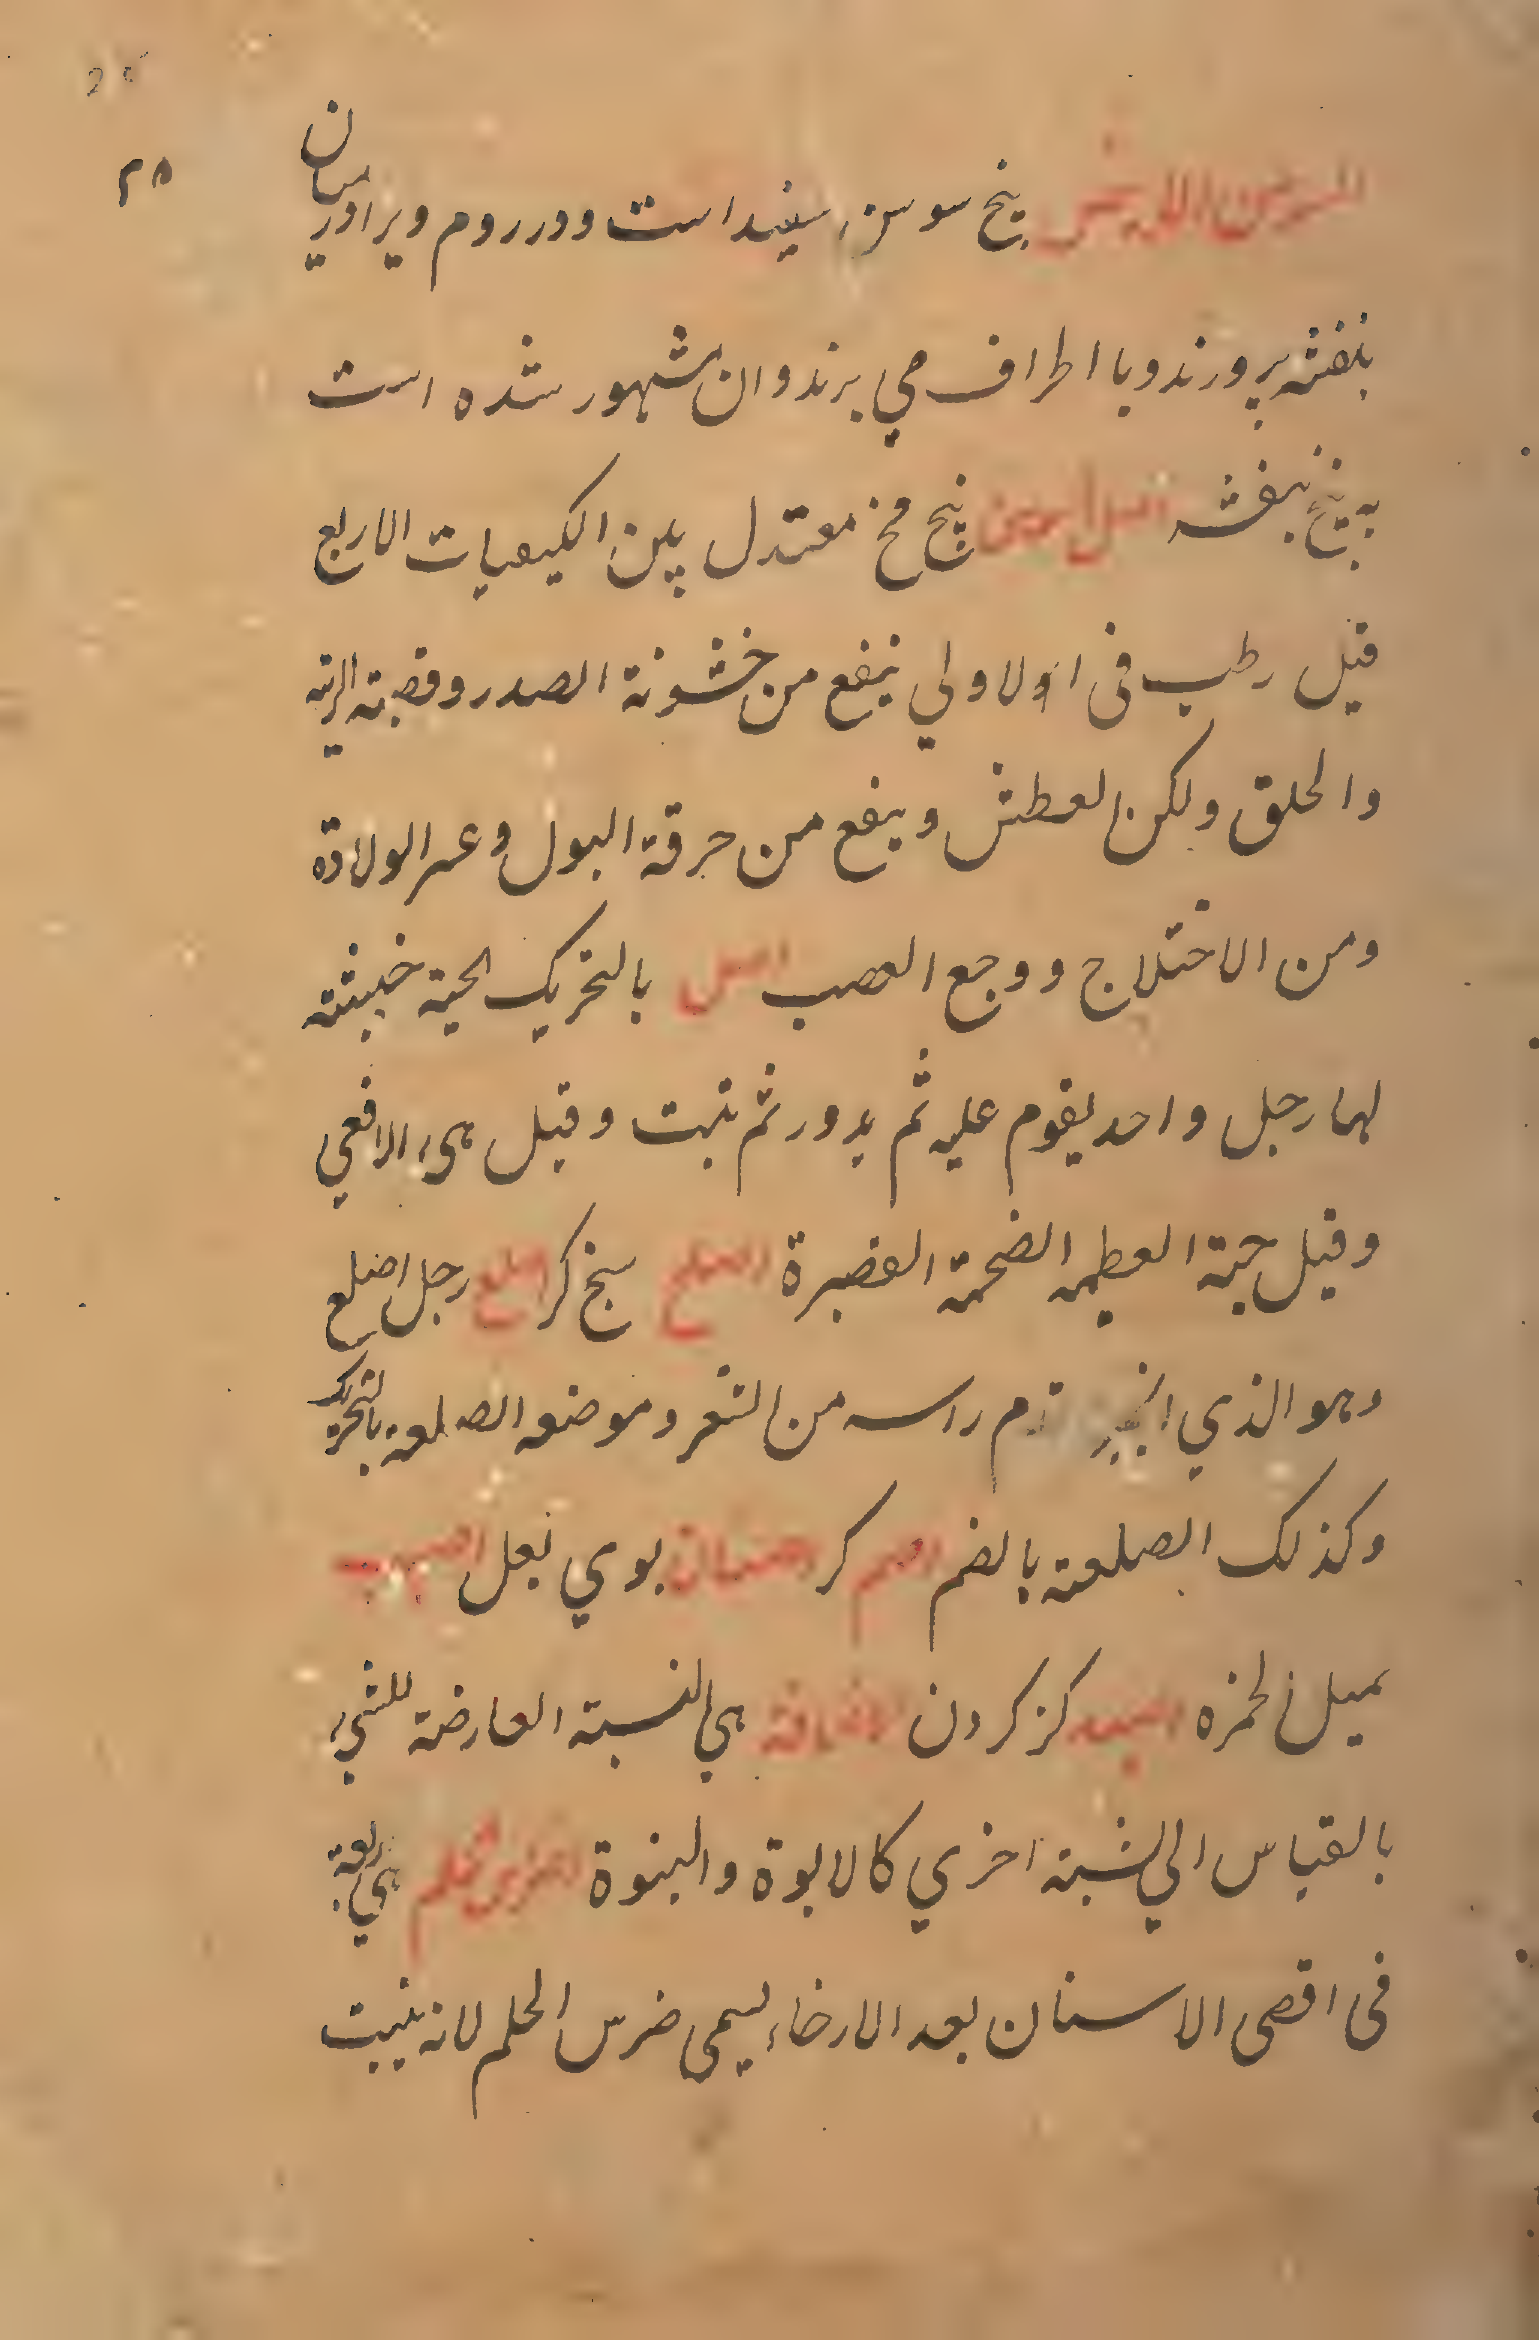 25
۲۸
السوسن الابيض بيخ سوسن سفيد است ودر روم ويرا در ميان
بنفشه پرورند وبا اطراف مي برند وان مشهور شده است
به بيخ بنفشه اصل بيخ معتدل بين الكيفيات الاربع
قيل رطب في الاولي ينفع من خشونة الصدر وقصبة الرية
والحلق ولكن العطش وينفع من حرقة البول وعسر الولادة
ومن الاختلاج ووجع العصب اصل بالتحريك الحية خبيثة
لها رجل واحد يقوم عليه ثم يدور ثم يثبت وقيل هي الافعي
وقيل حية العظيمه الضخمة القصيرة اصلخ سخ كر اصلع رجل اصلع
وهو الذي راسه من الشعر وموضعه الصلعة بالتحريك
وكذلك الصلعة بالضم اصم كر بوي بغل اصهب
يميل الحمزه كز كردن اضافة هي النسبة العارضة للشيء
بالقياس الي نسبة اخري كالابوة والبنوة اضراس الحلم هي اربعة
في اقصي الاسنان بعد الارخاء يسمي ضرس الحلم لانه ينبت